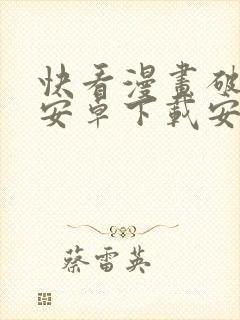 快看漫畫破
安卓下載安
蔡雷英